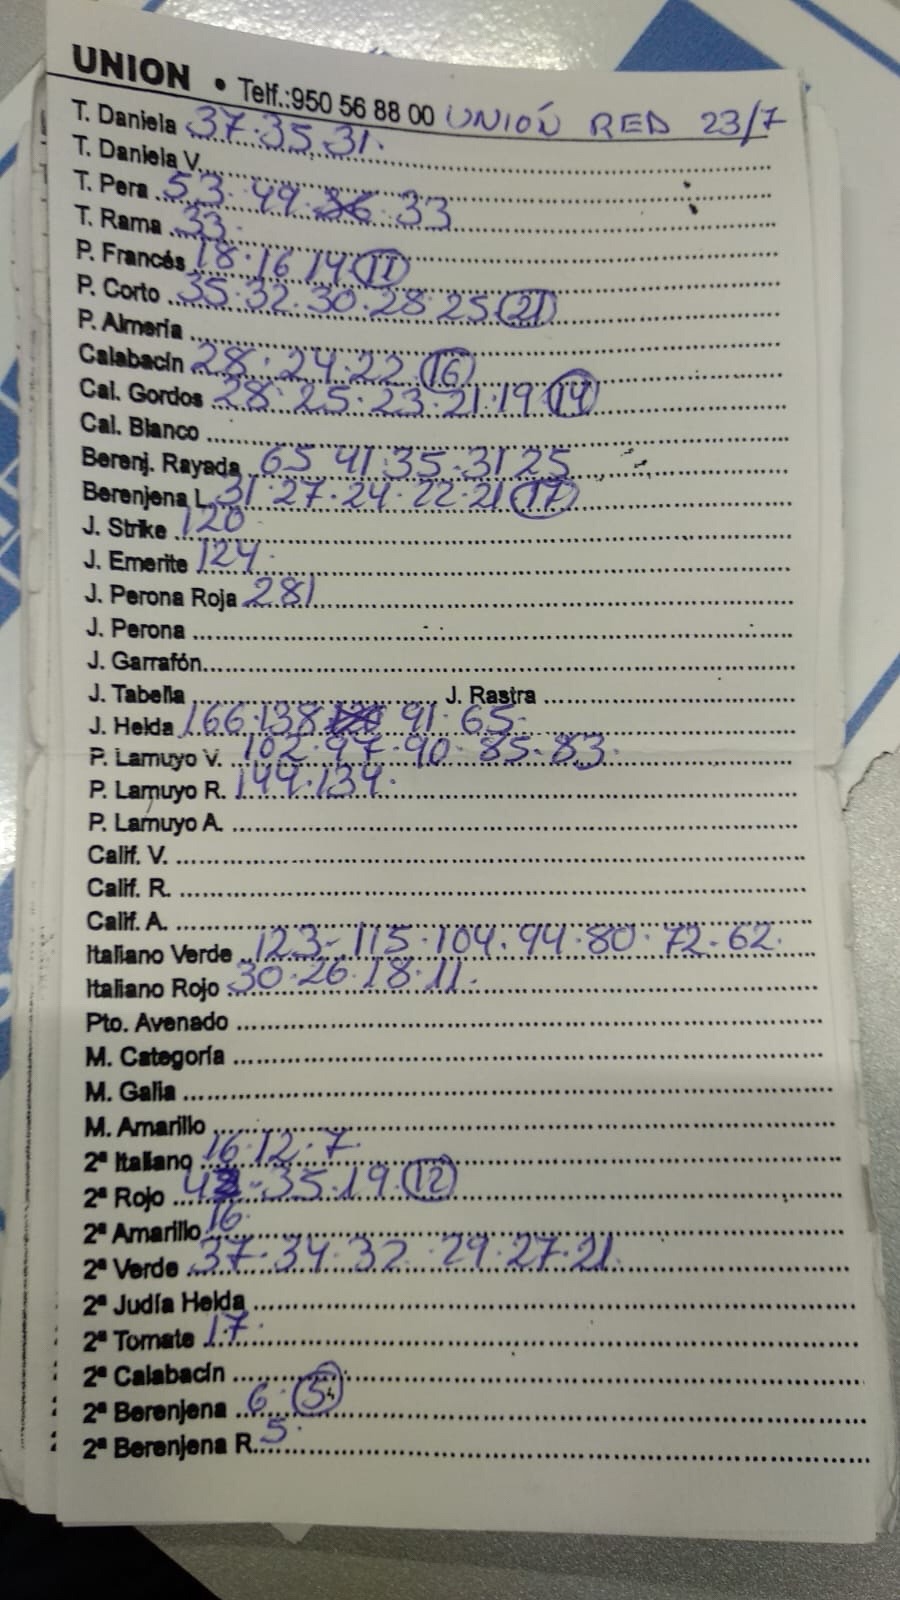 UNION • Telf.:950 56 88 00 UNIÓN RED 23/7
T. Daniela 37·35·31·
T. Daniela V.
T. Pera 53·49·36·33
T. Rama 33·
P. Francés 18·16·14·11
P. Corto 35·32·30·28·25·21
P. Almería
Calabacín 28·24·22·16
Cal. Gordos 28·25·23·21·19·14
Cal. Blanco
Berenj. Rayada 65 41·35·31·25
Berenjena L. 31·27·24·22·21·17
J. Strike 120·
J. Emerite 124·
J. Perona Roja 281
J. Perona
J. Garrafón
J. Tabella J. Rastra
J. Helda 166·138 91·65·
P. Lamuyo V. 102·97·90·85·83·
P. Lamuyo R. 144·134·
P. Lamuyo A.
Calif. V.
Calif. R.
Calif. A.
Italiano Verde 123-115·104·94·80·72·62·
Italiano Rojo 30·26·18·11·
Pto. Avenado
M. Categoría
M. Galia
M. Amarillo
2ª Italiano 16·12·7·
2ª Rojo 42-35·19·12
2ª Amarillo 16·
2ª Verde 37·34·32·29·27·21·
2ª Judía Helda
2ª Tomate 17·
2ª Calabacín
2ª Berenjena 6·5
2ª Berenjena R. 5·